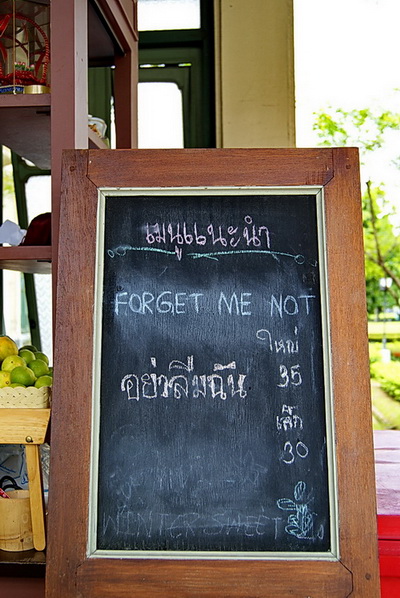 เมนูแนะนำ
FORGET ME NOT
ใหญ่
อย่าลืมฉัน 35
เล็ก
30
WINTER SWEET